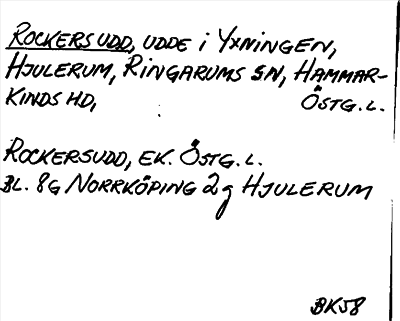 ROCKERSUDD, UDDE i YXNINGEN,
HJULERUM, RINGARUMS SN, HAMMAR-
KINDS HD, ÖSTG. L.
ROCKERSUDD, EK. ÖSTG. L.
BL. 8G NORRKÖPING 2g HJULERUM
BK58